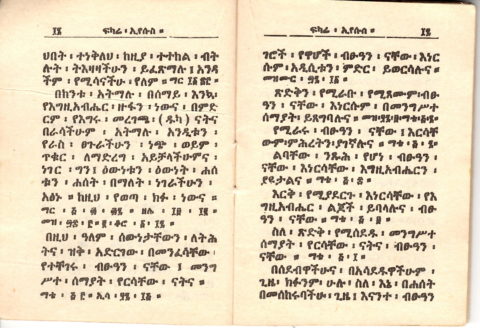 ፍካሬ ፡ ኢየሱስ ።
ህበት ፡ ተነቅለህ ፡ ከዚያ ፡ ተተከል ፡ ብት
ሉት ፡ ትእዛዛችሁን ፡ ይፈጽማሉ ፤ አንዳ
ችም ፡ የሚሳናችሁ ፡ የለም ። ማር
በከንቱ ፡ አትማሉ ፡ በሰማይ ፡ እንኳ
የእግዚአብሔር ፡ ዙፋን ፡ ነውና ፡ በምድ
ርም ፡ የእግሩ ፡ መረገጫ ፡ (ዱካ) ናትና
በራሳችሁም ፡ አትማሉ ፡ አንዲቱን ፡
የራስ ፡ ፀጉራችሁን ፡ ነጭ ፡ ወይም ፡
ጥቁር ፡ ለማድረግ ፡ አይቻላችሁምና፡
ነገር ፡ ግን ፤ ዕውነቱን ፡ ዕውነት ፡ ሐሰ
ቱን ፡ ሐሰት ፡ በማለት ፡ ነገራችሁን ፡
አፅኑ ። ከዚህ ፡ የወጣ ፡ ክፉ ፡ ነውና ።
በዚህ ፡ ዓለም ፡ ሰውነታቸውን ፡ ለትሕ
ትና ፡ ዝቅ ፡ አድርገው ፡ በመንፈሳቸው
የተቸገሩ ፡ ብፁዓን ፡ ናቸው ፤ መንግ
ሥተ ፡ ሰማያት ፡ የርሳቸው ፡ ናትና ።
ማቴ ፡ ፭ ፡ ፫ ኢሳ
ፍካሬ ፡ ኢየሱስ ።
ገሮች ፡ የዋሆች ፡ ብፁዓን ፡ ናቸው ፡ እነር
ሱም ፡ አዲሲቱን ፡ ምድር ፡ ይወርሳሉና ።
ጽድቅን ፡ የሚራቡ ፡ የሚጸሙም ፡ ብፁ
ዓን ፡ ናቸው ፡ እነርሱም ፡ በመንግሥተ
ሰማያት ፡ ይጸግባሉና ።
የሚራሩ ፡ ብፁዓን ፡ ናቸው ፤ እርሳቸ
ውም፡ምሕረትን፡ያገኛሉና ። ማቴ ፡ ፭ ፡
ልባቸው ፡ ንጹሕ ፡ የሆነ ፡ ብፁዓን ፡
ናቸው ፡ እነርሱ ፡ እግዚአብሔርን ፡
ያዩታልና ። ማቴ ፡ ፭ ፡
እርቅ ፡ የሚያደርጉ ፡ እነርሳቸው ፡ የእ
ግዚአብሔር ፡ ልጆች ፡ ይባላሉና ፡ ብፁዓ
ን ፡ ናቸው ። ማቴ ፡ ፭ ፡
ስለ ፡ ጽድቅ ፡ የሚሰደዱ ፡ መንግሥተ
ሰማያት ፡ የርሳቸው ፡ ናትና ፡ ብፁዓን ፡
ናቸው ። ማቴ ፡ ፭ ፡
በሰደብዋችሁና ፡ በአሳደዱዋችሁም ፡
ጊዜ፡ ክፉንም፡ ሁሉ፡ ስለ ፡ እኔ ፡ በሐሰት
በመሰከሩባችሁ ፡ ጊዜ፤ እናንተ ፡ ብፁዓን